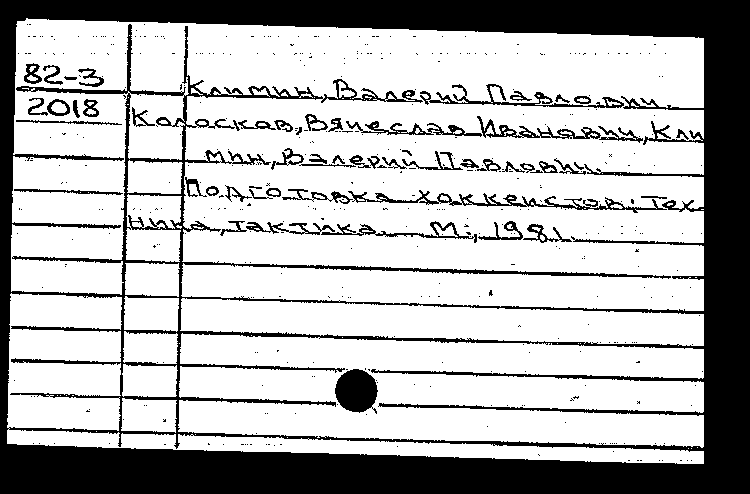 82-3
2018
Климин, Валерий Павлович.
Колосков, Вячеслав Иванович, Кли
мин, Валерий Павлович.
Подготовка хоккеистов: Тех-
ника, тактика. — М., 1981.